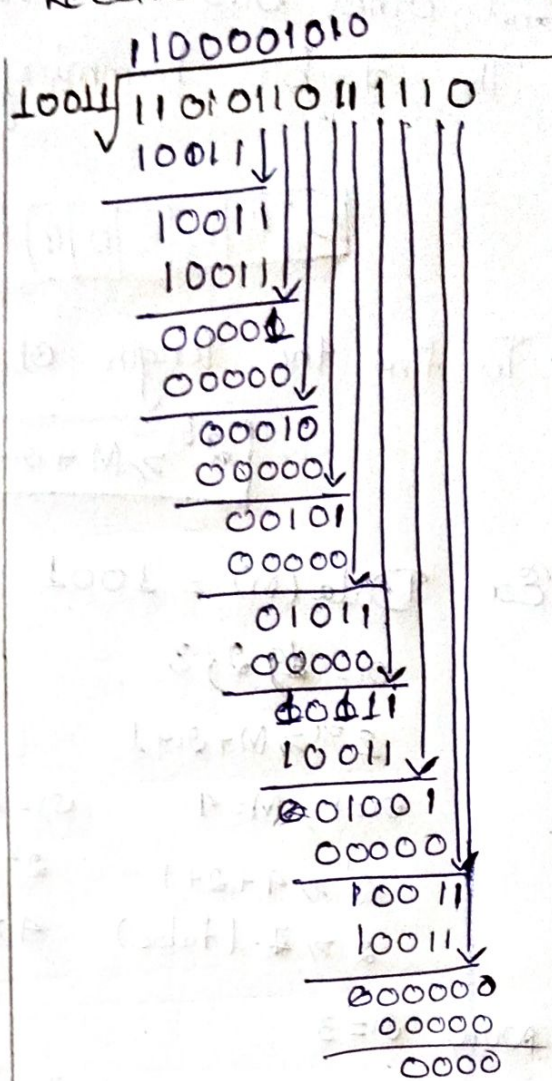 1100001010
10011 11010110111110
10011
10011
10011
00001
00000
00010
00000
00101
00000
01011
00000
10111
10011
001001
00000
10011
10011
000000
00000
0000